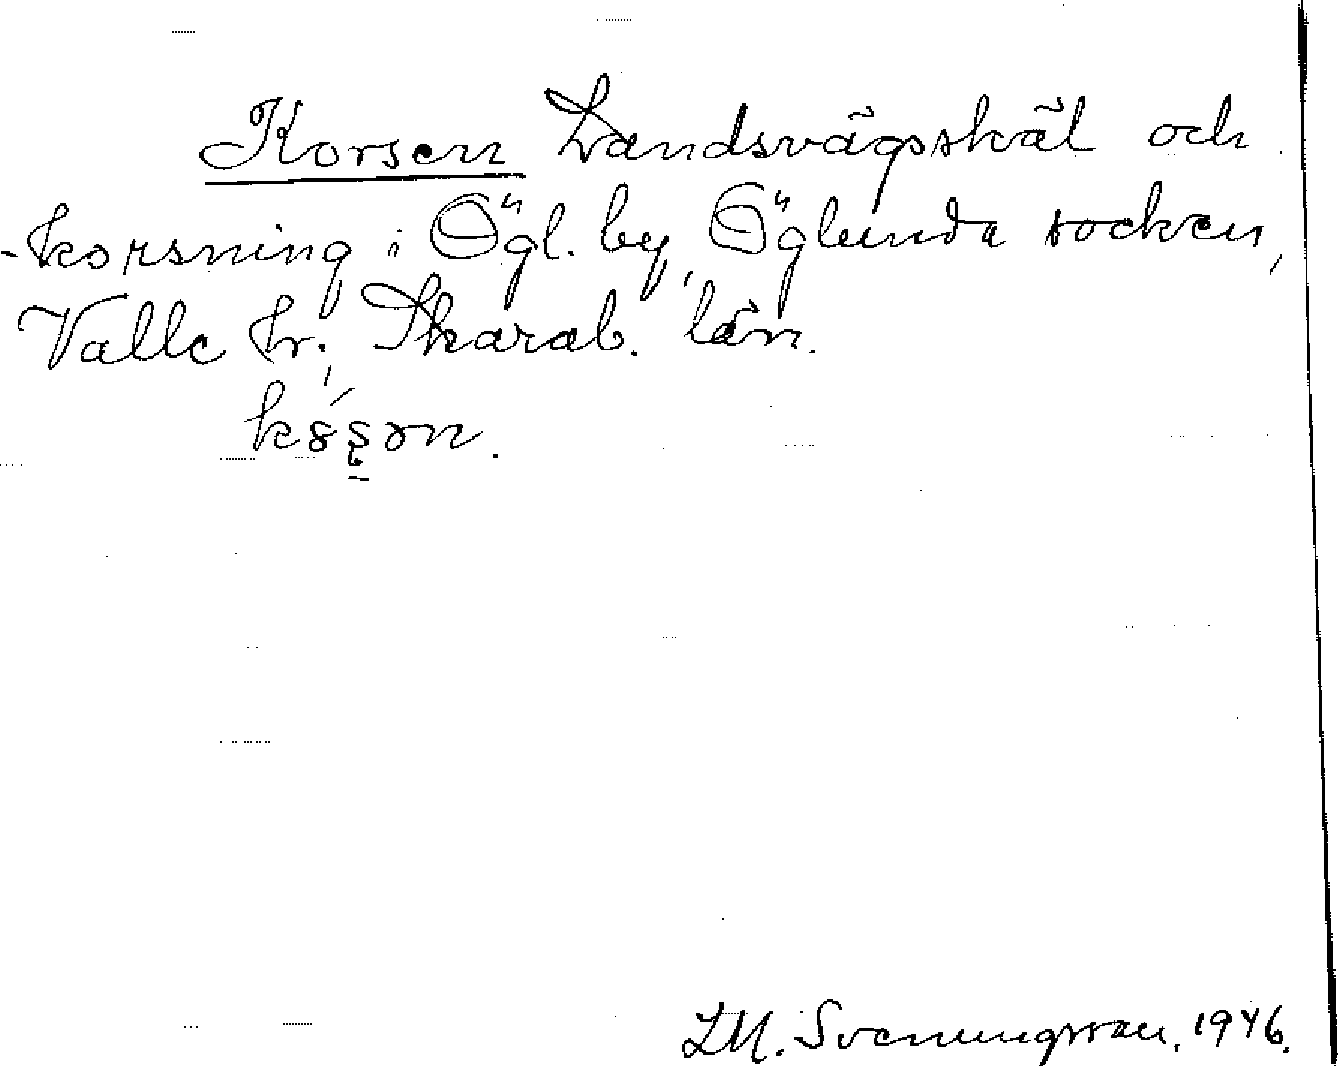 Korsen Landsvägsskäl och
-korsning i Ögl. by, Öglunda socken,
Valle hr., Skarab. län.
L.M. Svenungsson, 1946.